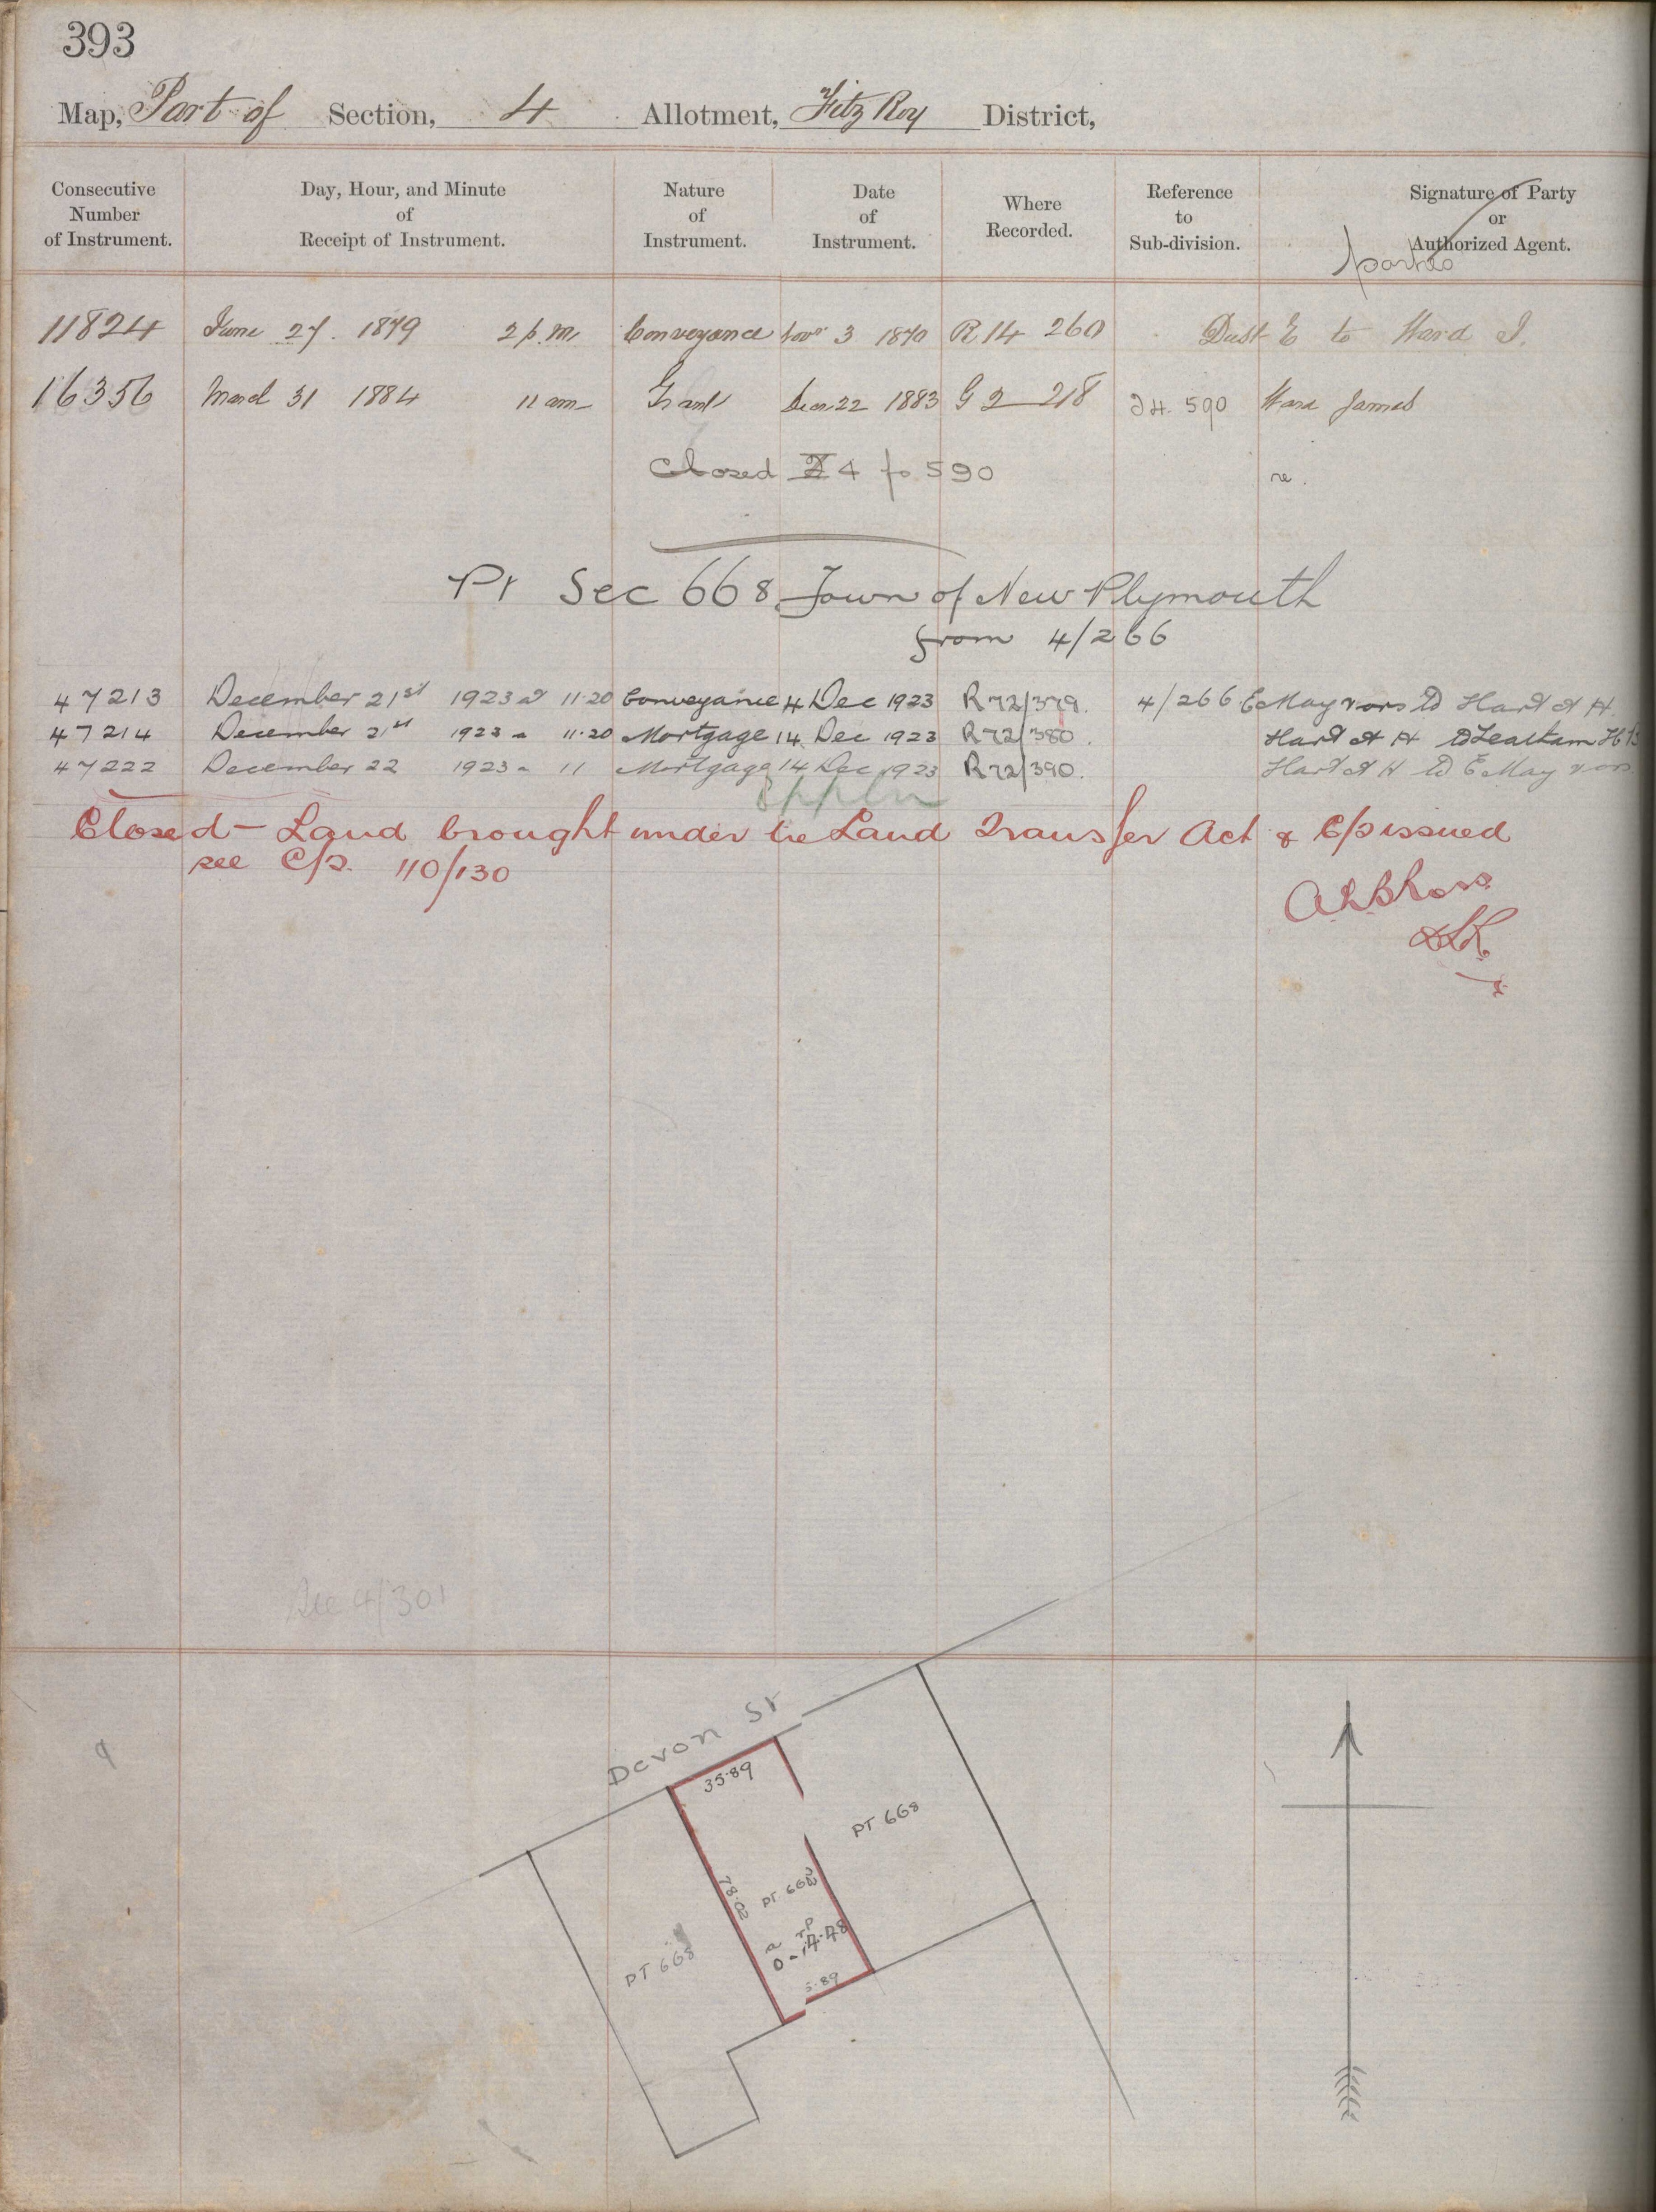 393
Map, Part of Section, 4 Allotment, Fitz Roy District,
Consecutive Number of Instrument. Day, Hour, and Minute of Receipt of Instrument. Nature of Instrument. Date of Instrument. Where Recorded. Reference to Sub-division. Signature of Party or Authorized Agent.
parties
11824 June 27. 1879 2 p.m. Conveyance Novr 3 1870 R 14 260 E to Ward J.
16356 March 31 1884 11 am Grant Decr 22 1883 G 2 218 I4. 590 Ward James
Closed I 4 fo 590
Pt Sec 668 Town of New Plymouth
from 4/266
47213 December 21st 1923 at 11.20 Conveyance 14 Dec 1923 R72/379. 4/266 E May to Hart A H.
47214 December 21st 1923 " 11.20 Mortgage 14 Dec 1923 R72/380. Hart A H to Leatham H B
47222 December 22 1923 " 11 Mortgage 14 Dec 1923 R72/390. Hart A H to E May
Closed - Land brought under the Land Transfer Act & C/s issued
see C/s. 110/130
DLR
See 4/301
Devon St
35.89
PT 668
78.02
PT 668
a r p
0-14.48
PT 668
5.89